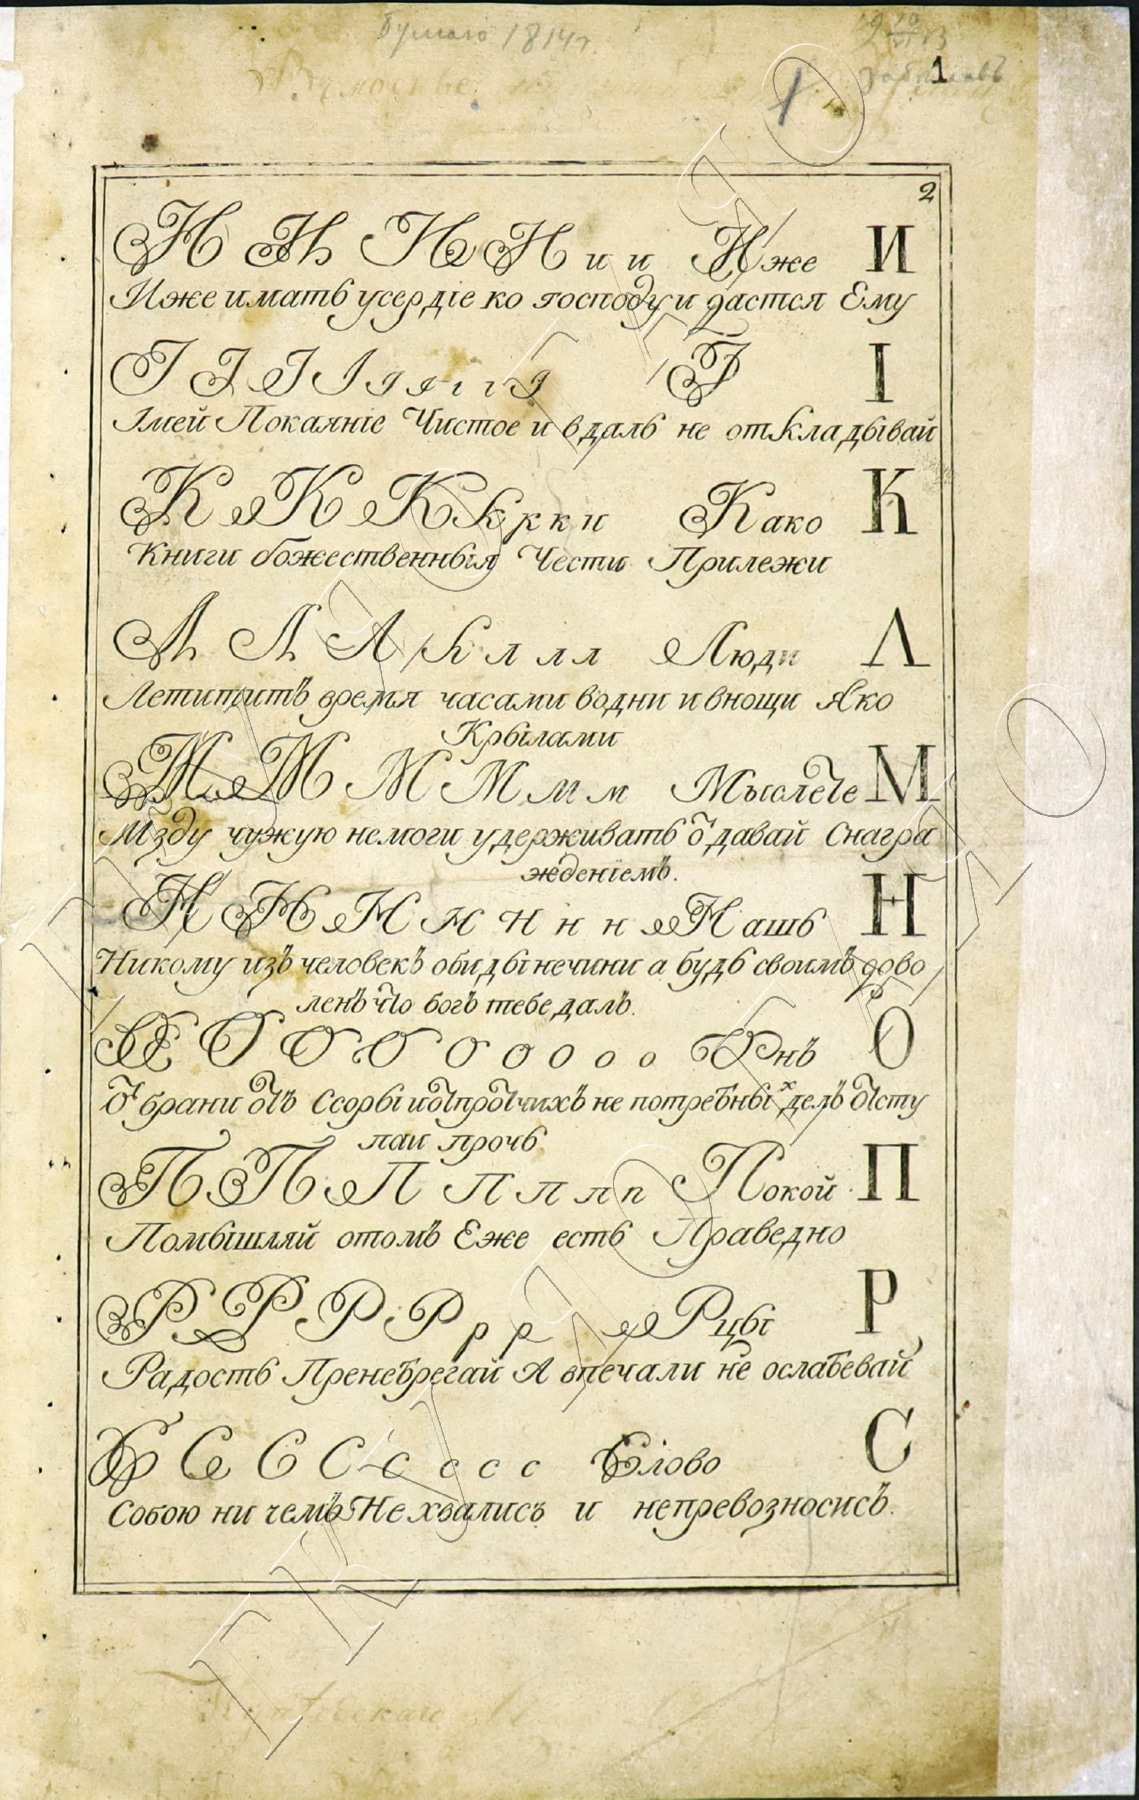 бумага 1814 г.
1
2
И И И И и и Иже И
Иже имать усердїе ко господу и дастся Ему
І І І І і і і і і І І
Імей Покаянїе Чистое и вдаль не откладывай
К К К к к к к Како К
Книги божественныя Чести Прилежи
Л Л Л л л л л Люди Л
Летититъ время часами водни и внощи Яко
Крылами
М М М М м м Мыслете М
Мзду чужую немоги удерживать ѿдавай Снагра
ждениемъ.
Н Н Н н н н н Нашь Н
Никому изъ человекъ обиды нечини а будь своимъ дово
ленъ что богъ тебе далъ.
О О О О о о о о о Онъ О
ѿ брани ѿъ Ссоры иѿпротчихъ не потребных делъ ѿсту
паи прочь
П П П П п п п Покой П
Помышляй отомъ Еже есть Праведно
Р Р Р Р р р Рцы Р
Радость Пренебрегай А впечали не ослабевай
С С С С с с с с Слово С
Собою ни чемъ Не хвались и непревозносисъ.
ГКУ ЛО ГАЯО